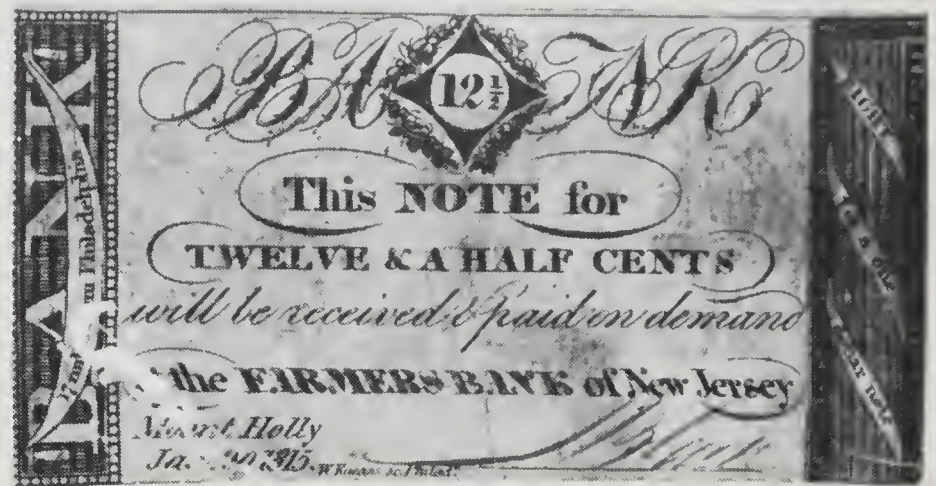 BANK
12½
This NOTE for
TWELVE & A HALF CENTS
will be received & paid on demand
the FARMERS BANK of New Jersey
Mount Holly
1815
Philadelphia
note